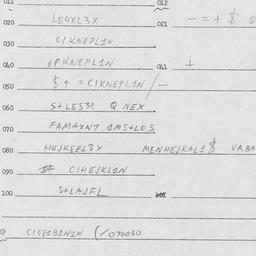 011 012
020 LE4XL3X 021 - = + $
030 CIKNEPL1N
040 EFKNEPL1N 041 +
050 $ + = CIKNEPL1N / -
060 S+LES3E Q NEX
070 FAMAXN7 1MS+LDS
080 HEJKGEL3X MENHEJKAL1 $ VA.BA
090 CIHEJKL1N
100 S+LAJFL
CISP1B1N1N (/070030